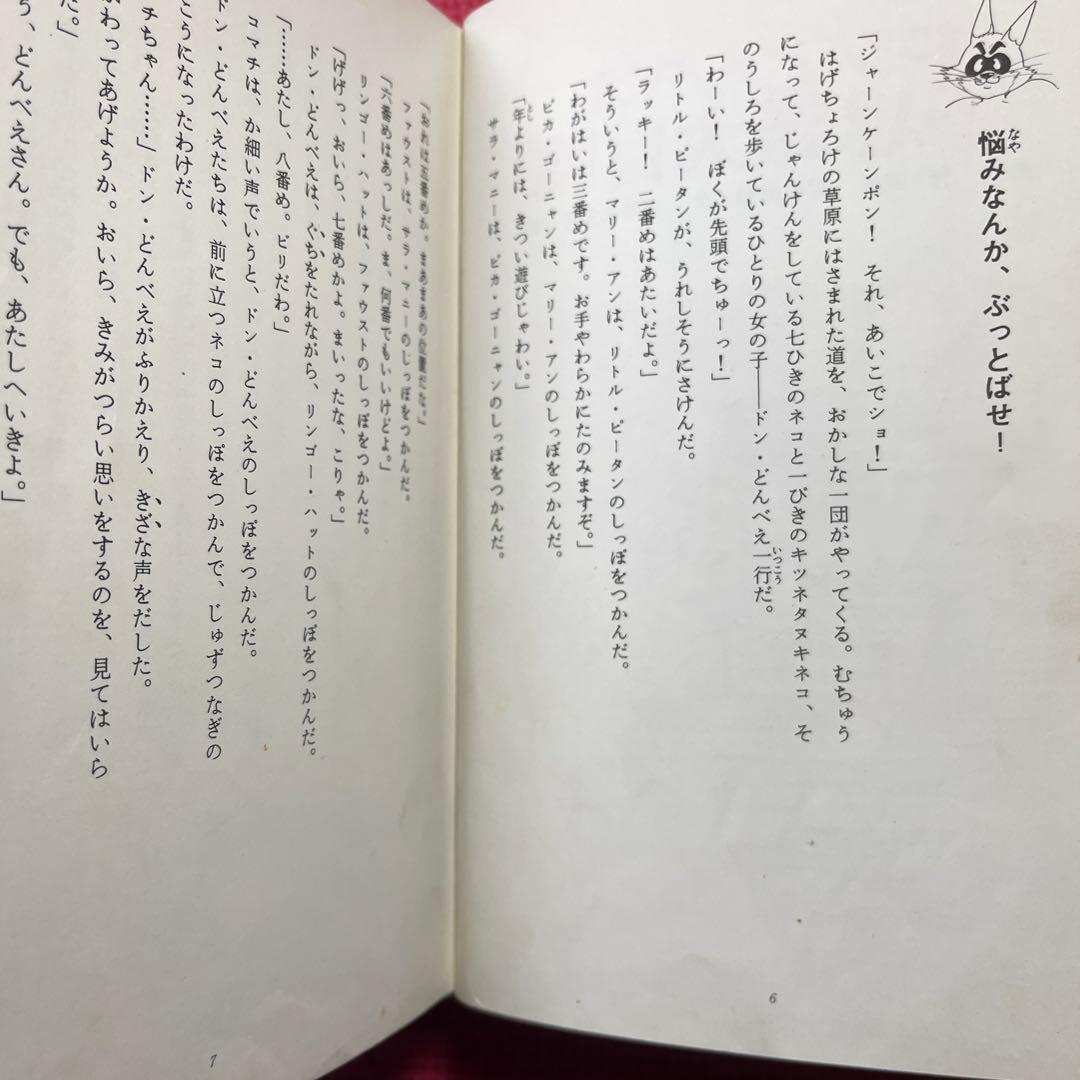 悩みなんか、ぶっとばせ！
なや
「ジャーンケーンポン！　それ、あいこでショ！」
はげちょろけの草原にはさまれた道を、おかしな一団がやってくる。むちゅう
になって、じゃんけんをしている七ひきのネコと一ぴきのキツネタヌキネコ、そ
のうしろを歩いているひとりの女の子——ドン・どんべえ一行だ。
いっこう
「わーい！　ぼくが先頭でちゅーっ！」
リトル・ピータンが、うれしそうにさけんだ。
「ラッキー！　二番めはあたいだよ。」
そういうと、マリー・アンは、リトル・ピータンのしっぽをつかんだ。
「わがはいは三番めです。お手やわらかにたのみますぞ。」
ピカ・ゴーニャンは、マリー・アンのしっぽをつかんだ。
「年よりには、きつい遊びじゃわい。」
とし
サラ・マニーは、ピカ・ゴーニャンのしっぽをつかんだ。
6
「おれは五番めか。まあまあの位置だな。」
ファウストは、サラ・マニーのしっぽをつかんだ。
「六番めはあっしだ。ま、何番でもいいけどよ。」
リンゴー・ハットは、ファウストのしっぽをつかんだ。
「げげっ、おいら、七番めかよ。まいったな、こりゃ。」
ドン・どんべえは、ぐちをたれながら、リンゴー・ハットのしっぽをつかんだ。
「……あたし、八番め。ビリだわ。」
コマチは、か細い声でいうと、ドン・どんべえのしっぽをつかんだ。
ドン・どんべえたちは、前に立つネコのしっぽをつかんで、じゅずつなぎの
こうになったわけだ。
チちゃん……」ドン・どんべえがふりかえり、きざな声をだした。
わってあげようか。おいら、きみがつらい思いをするのを、見てはいら
だ。」
う、どんべえさん。でも、あたしへいきよ。」
7